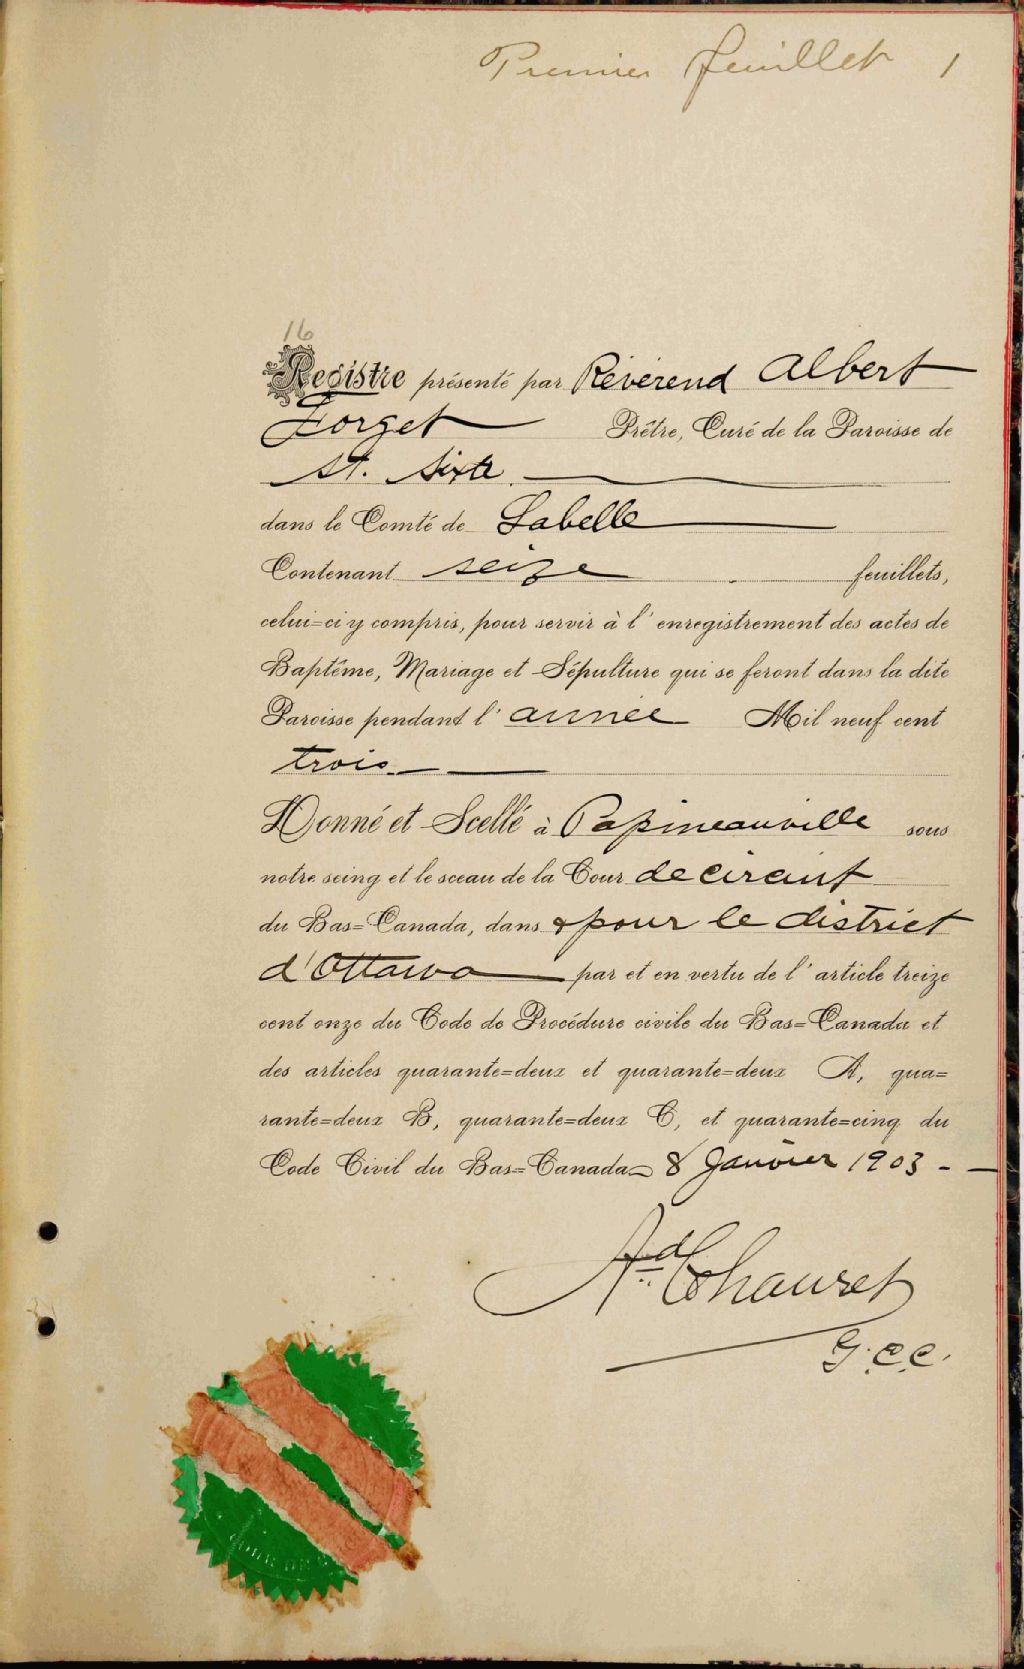 Premier feuillet 1
16
Registre présenté par Révérend Albert
Forget Prêtre, Curé de la Paroisse de
St. Sixte
dans le Comté de Labelle
Contenant seize feuillets,
celui=ci y compris, pour servir à l'enregistrement des actes de
Baptême, Mariage et Sépulture qui se feront dans la dite
Paroisse pendant l'année Mil neuf cent
trois
Donné et Scellé à Papineauville sous
notre seing et le sceau de la Cour de circuit
du Bas=Canada, dans & pour le district
d'Ottawa par et en vertu de l'article treize
cent onze du Code de Procédure civile du Bas=Canada et
des articles quarante=deux et quarante=deux A, qua=
rante=deux B, quarante=deux C, et quarante=cinq du
Code Civil du Bas=Canada 8 Janvier 1903 - -
Ad Chauret
G.C.C.
COUR DE